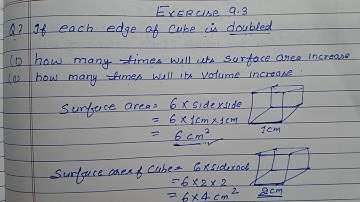 Exercise 9.3
Q7 If each edge of Cube is doubled
(i) how many times will its surface area increase
(ii) how many times will its volume increase.
Surface area = 6 x side x side
= 6 x 1cm x 1cm
= 6 cm²
1cm
Surface area of Cube = 6 x side x side
= 6 x 2 x 2
= 6 x 4 cm²
2cm